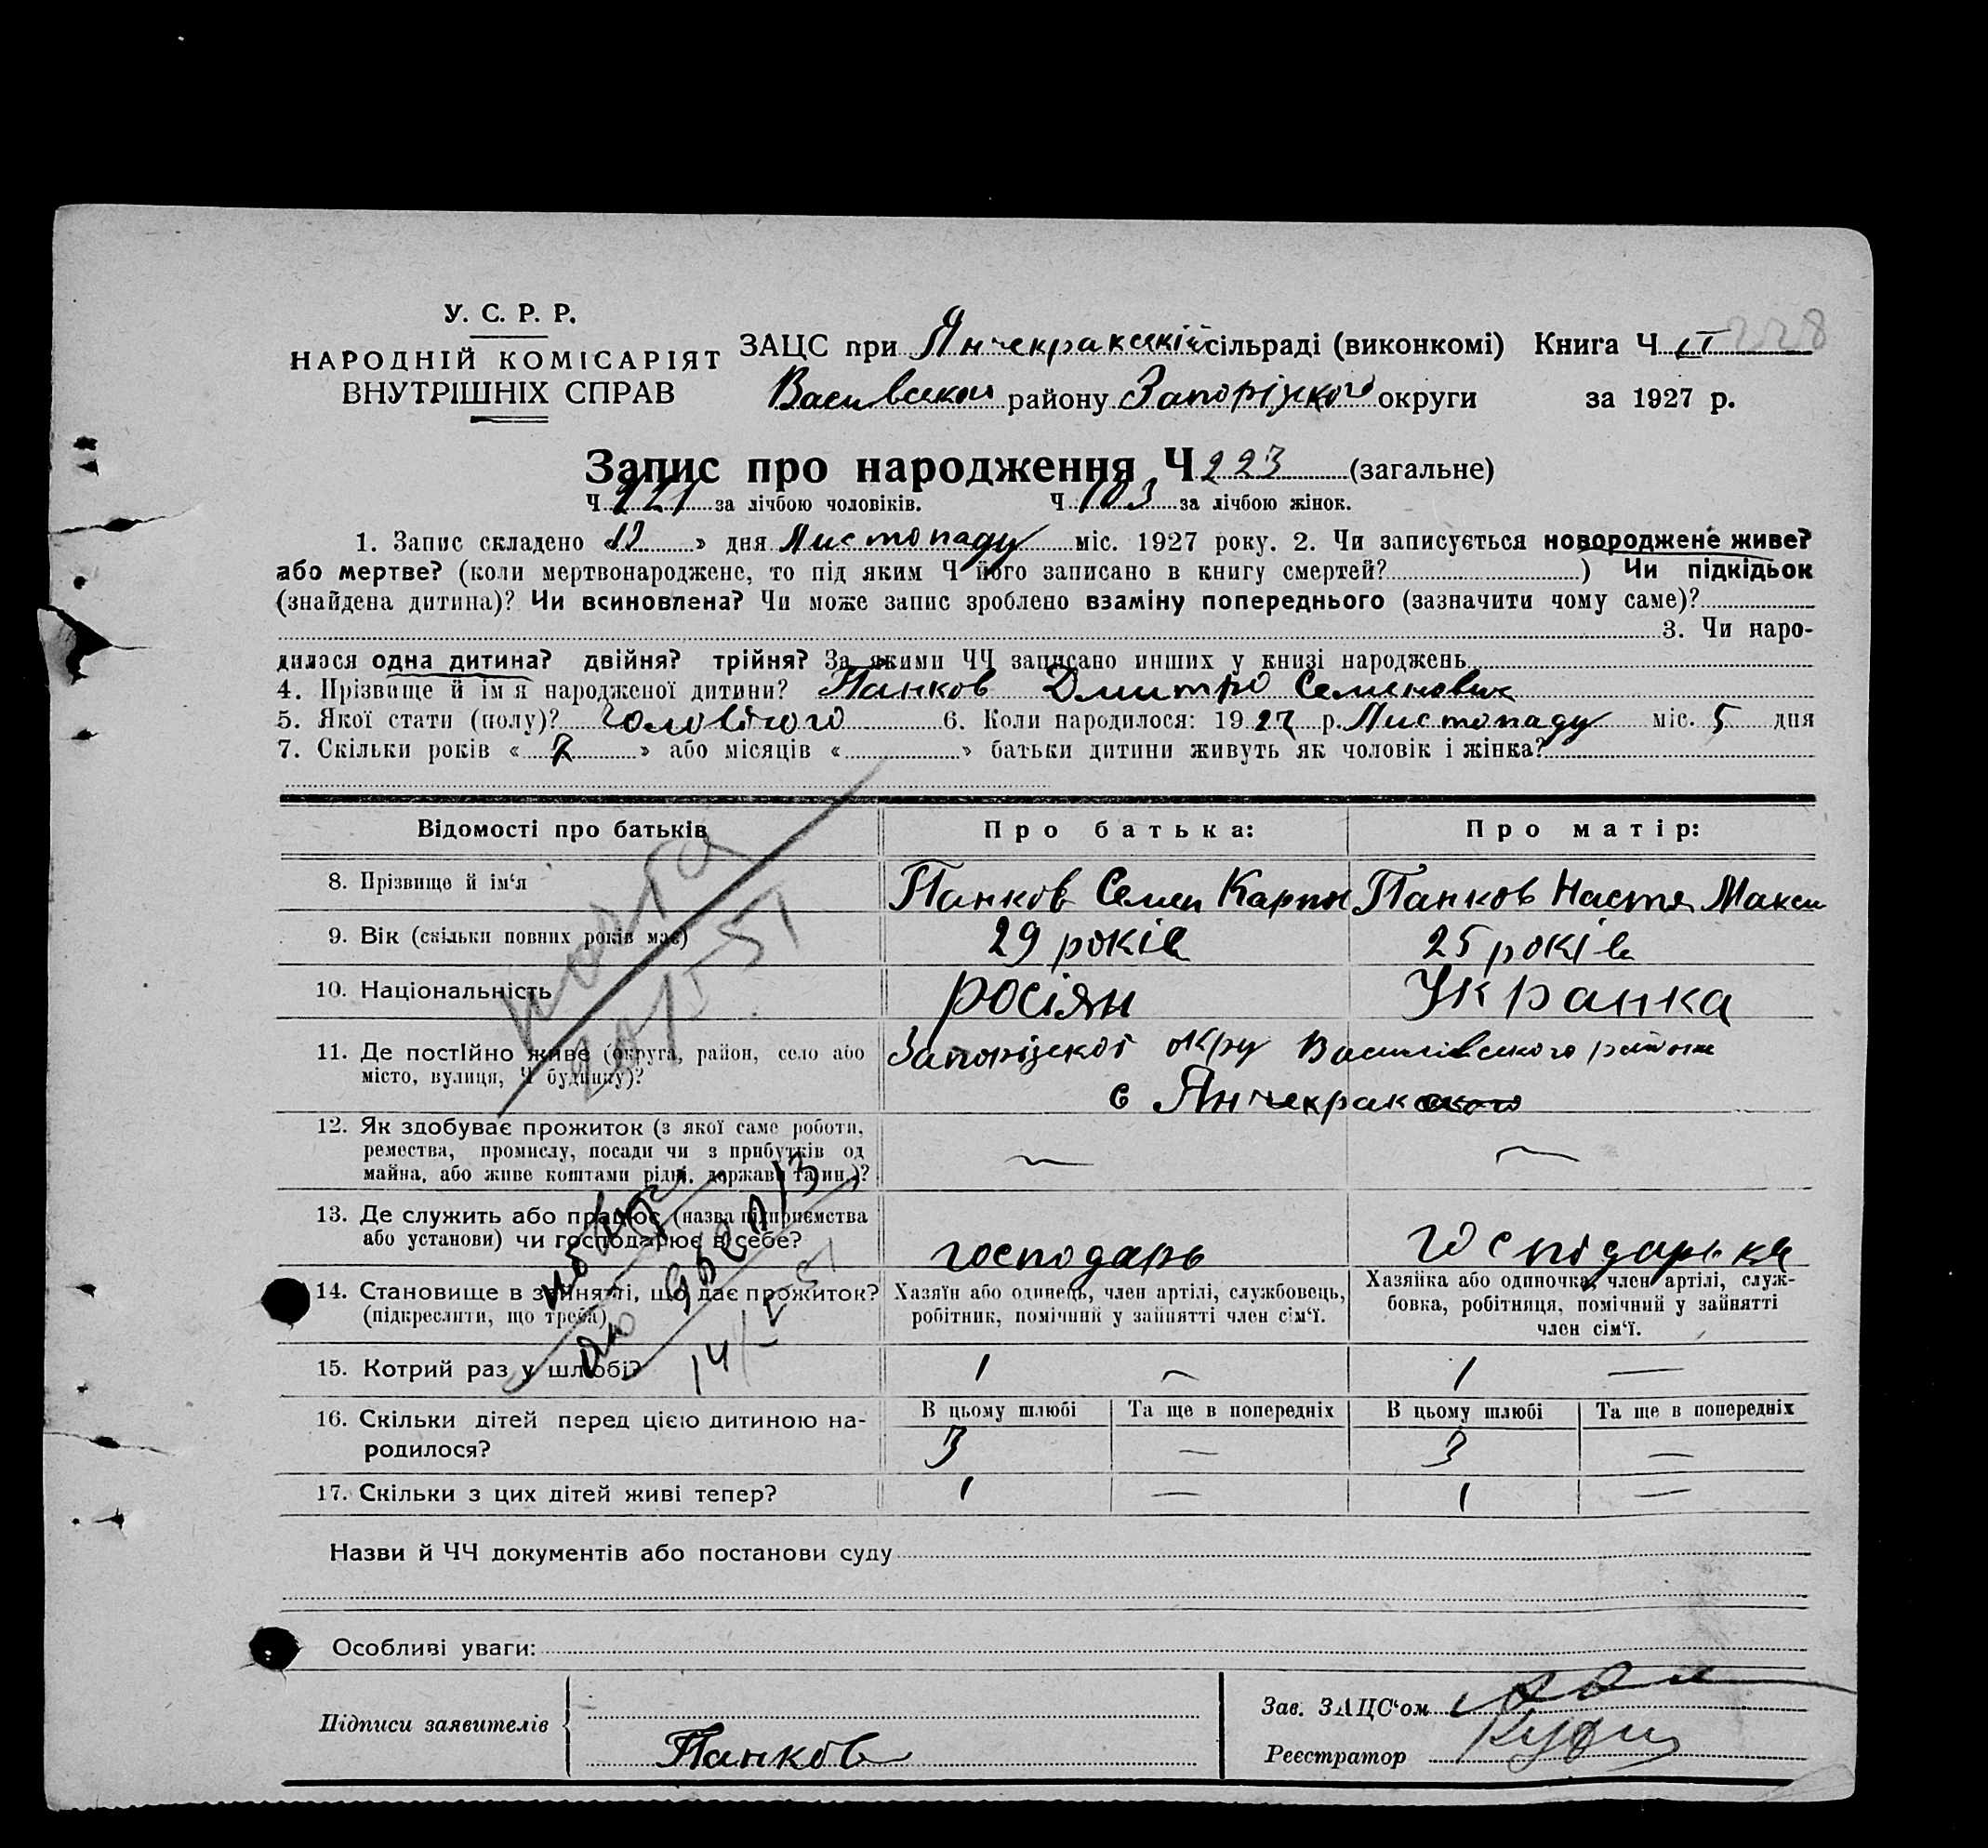 228
У. С. Р. Р.
НАРОДНІЙ КОМІСАРІЯТ
ВНУТРІШНІХ СПРАВ
ЗАЦС при Янчекракській сільраді (виконкомі) Книга Ч
району Запорізкої округи за 1927 р.
Запис про народження Ч 223 (загальне)
Ч 121 за лічбою чоловіків. Ч 103 за лічбою жінок.
1. Запис складено «12» дня Листопаду міс. 1927 року. 2. Чи записується новороджене живе?
або мертве? (коли мертвонароджене, то під яким Ч його записано в книгу смертей?) Чи підкідьок
(знайдена дитина)? Чи всиновлена? Чи може запис зроблено взаміну попереднього (зазначити чому саме)?
3. Чи наро-
дилося одна дитина? двійня? трійня? За якими ЧЧ записано инших у книзі народжень
4. Прізвище й ім'я народженої дитини? Панков Дмитро Семенович
5. Якої стати (полу)? чоловічого 6. Коли народилося: 1927 р. Листопаду міс. 5 дня
7. Скільки років « » або місяців « » батьки дитини живуть як чоловік і жінка?
Відомості про батьків Про батька: Про матір:
8. Прізвище й ім‘я Панков Семен Карпов Панков Настя Макси
9. Вік (скільки повних років має) 29 років 25 років
10. Національність росіян Укранка
11. Де постійно живе (округа, район, село або Запорізскої окру Василівського району
місто, вулиця, Ч будинку)? с Янчекракского
12. Як здобуває прожиток (з якої саме роботи, — —
ремества, промислу, посади чи з прибутків од
майна, або живе коштами рідні, держави та ин.)?
13. Де служить або працює (назва підприємства господарь господарька
або установи) чи господарює в себе?
14. Становище в зайнятті, що дає прожиток? Хазяїн або одинець, член артілі, службовець, Хазяйка або одиночка, член артілі, служ-
(підкреслити, що треба) робітник, помічний у зайнятті член сім‘ї. бовка, робітниця, помічний у зайнятті
член сім‘ї.
15. Котрий раз у шлюбі? 1 — 1 —
16. Скільки дітей перед цією дитиною на- В цьому шлюбі Та ще в попередніх В цьому шлюбі Та ще в попередніх
родилося? 3 — 3 —
17. Скільки з цих дітей живі тепер? 1 — 1 —
Назви й ЧЧ документів або постанови суду
Особливі уваги:
Підписи заявителів Панков
Зав. ЗАЦС‘ом
Реєстратор